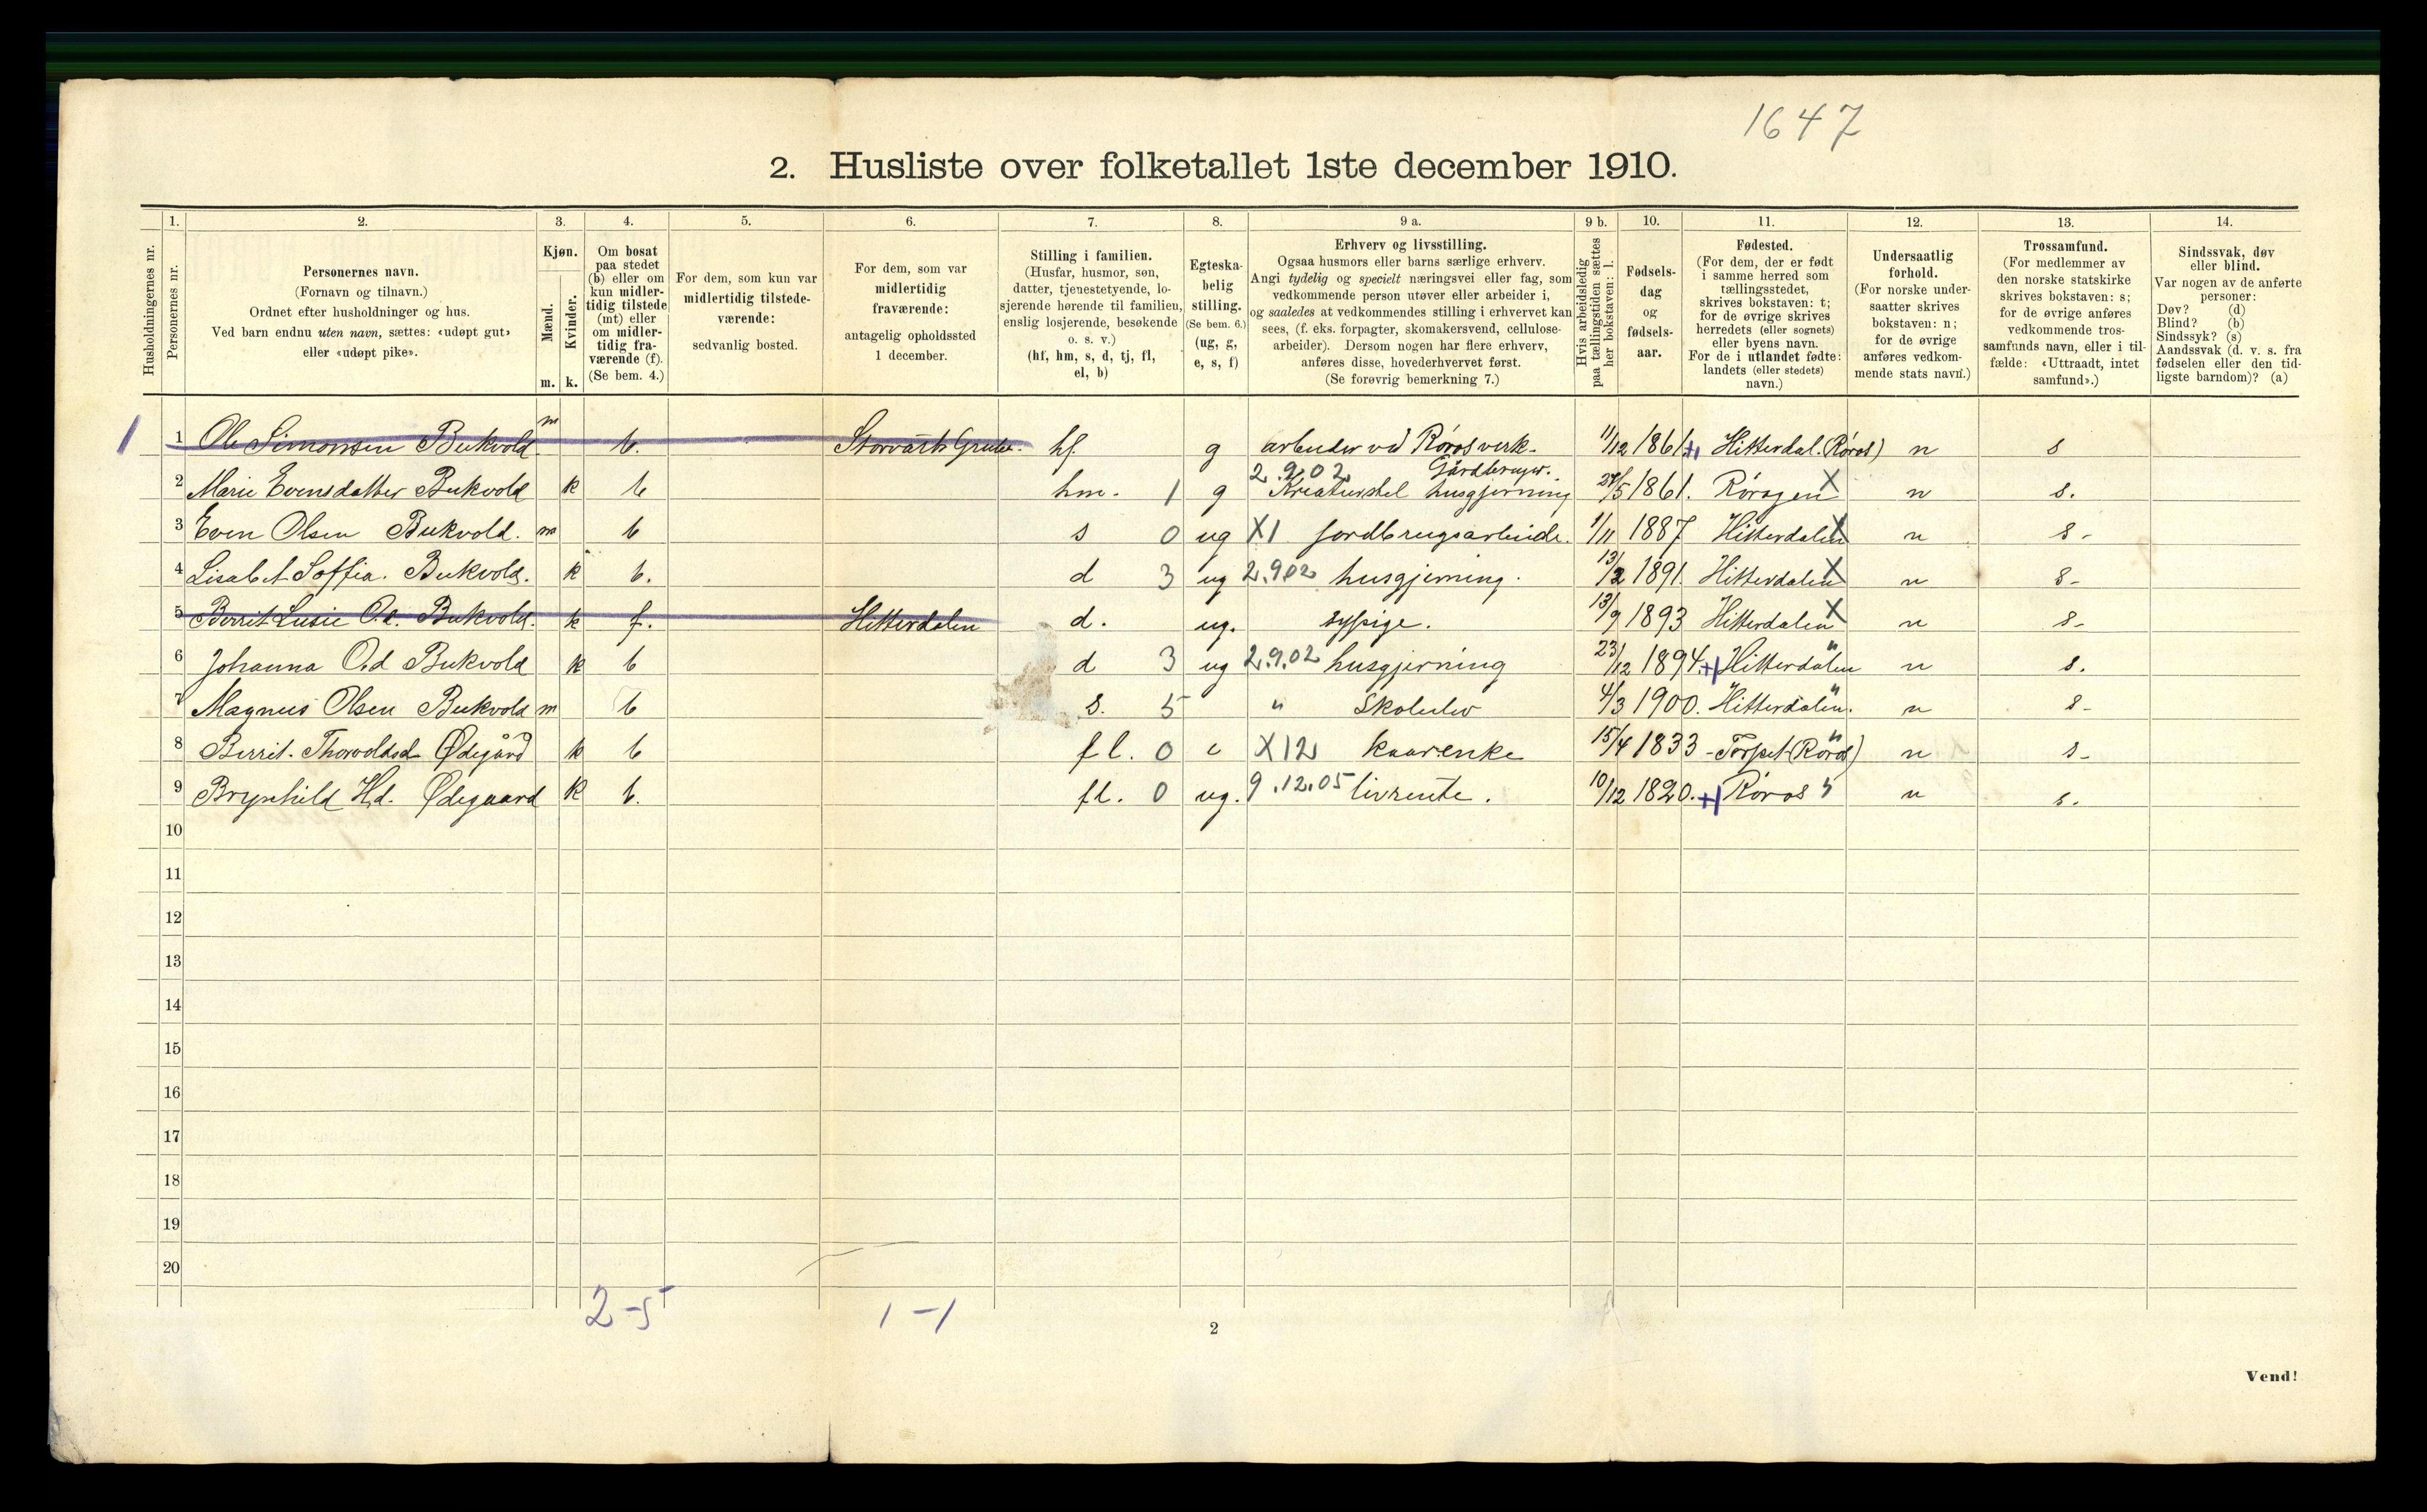 1647
2. Husliste over folketallet 1ste december 1910.
Husholdningernes nr.
1. Personernes nr.
2. Personernes navn.
(Fornavn og tilnavn.)
Ordnet efter husholdninger og hus.
Ved barn endnu uten navn, sættes: «udøpt gut»
eller «udøpt pike».
3. Kjøn.
Mænd. m.
Kvinder. k.
4. Om bosat
paa stedet
(b) eller om
kun midler-
tidig tilstede
(mt) eller
om midler-
tidig fra-
værende (f).
(Se bem. 4.)
5. For dem, som kun var
midlertidig tilstede-
værende:
sedvanlig bosted.
6. For dem, som var
midlertidig
fraværende:
antagelig opholdssted
1 december.
7. Stilling i familien.
(Husfar, husmor, søn,
datter, tjenestetyende, lo-
sjerende hørende til familien,
enslig losjerende, besøkende
o. s. v.)
(hf, hm, s, d, tj, fl,
el, b)
8. Egteska-
belig
stilling.
(Se bem. 6.)
(ug, g,
e, s, f)
9 a. Erhverv og livsstilling.
Ogsaa husmors eller barns særlige erhverv.
Angi tydelig og specielt næringsvei eller fag, som
vedkommende person utøver eller arbeider i,
og saaledes at vedkommendes stilling i erhvervet kan
sees, (f. eks. forpagter, skomakersvend, cellulose-
arbeider). Dersom nogen har flere erhverv,
anføres disse, hovederhvervet først.
(Se forøvrig bemerkning 7.)
9 b. Hvis arbeidsledig
paa tællingstiden sættes
her bokstaven: l.
10. Fødsels-
dag
og
fødsels-
aar.
11. Fødested.
(For dem, der er født
i samme herred som
tællingsstedet,
skrives bokstaven: t;
for de øvrige skrives
herredets (eller sognets)
eller byens navn.
For de i utlandet fødte:
landets (eller stedets)
navn.)
12. Undersaatlig
forhold.
(For norske under-
saatter skrives
bokstaven: n;
for de øvrige
anføres vedkom-
mende stats navn.)
13. Trossamfund.
(For medlemmer av
den norske statskirke
skrives bokstaven: s;
for de øvrige anføres
vedkommende tros-
samfunds navn, eller i til-
fælde: «Uttraadt, intet
samfund».)
14. Sindssvak, døv
eller blind.
Var nogen av de anførte
personer:
Døv? (d)
Blind? (b)
Sindssyk? (s)
Aandssvak (d. v. s. fra
fødselen eller den tid-
ligste barndom)? (a)
1 1 Ole Simonsen Bukvold. m b. Storvarts Grube. hf. g arbeider ved Røros verk. 11/12 1861 Hitterdal. (Røros) n s
Gårdbruger.
2 Marie Evensdatter Bukvold k b hm. 1 g 2.9.02 Kreaturstel husgjerning 27/5 1861. Rørosgen X n s.
3 Even Olsen Bukvold. m b s 0 ug X1 jordbrugsarbeide. 1/11 1887 Hitterdalen X n s-
4 Lisabet Soffia. Bukvold. k b. d 3 ug 2.902 husgjerning. 13/2 1891. Hitterdalen X n s-
5 Berrit Lusie O.d. Bukvold. k f. Hitterdalen d. ug. sypige. 13/9 1893 Hitterdalen X n s-
6 Johanna O.d Bukvold k b d 3 ug 2.9.02 husgjerning 23/12 1894. Hitterdalen " n s.
7 Magnus Olsen Bukvold m b s. 5 " Skoleelev 4/3 1900. Hitterdalen. " n s-
8 Berrit. Thorvoldsd Ødegård k b fl. 0 e X12 kaarenke 15/4 1833 - Torpet (Røros) " n s-
9 Brynhild H.d. Ødegaard k b. fl. 0 ug. 9.12.05 livrente. 10/12 1820. Røros " n s.
10
11
12
13
14
15
16
17
18
19
20
2-5 1-1
2
Vend!